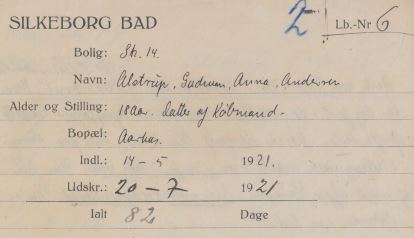 SILKEBORG BAD
2
Lb.-Nr 6
Bolig: Sh. 14.
Navn: Alstrup, Gudrun, Anna, Andersen
Alder og Stilling: 18 Aar. Datter af Købmand.
Bopæl: Aarhus.
Indl.: 14 - 5 1921.
Udskr.: 20 - 7 1921
Ialt 82 Dage